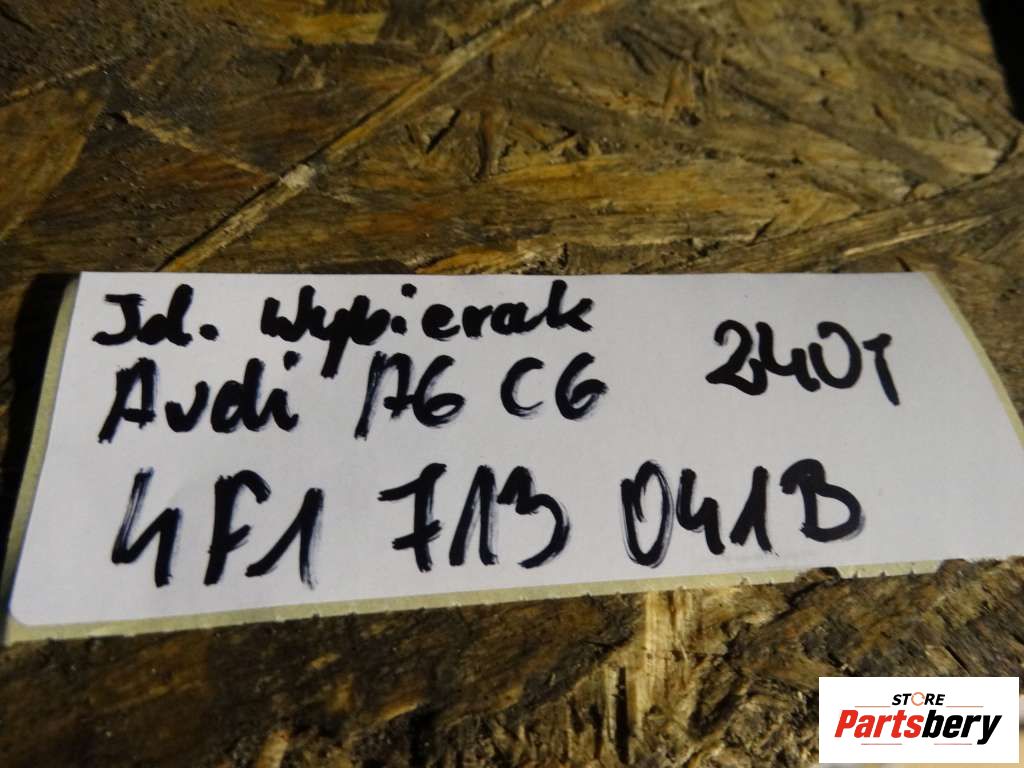 Jd. Wybierak
Audi A6 C6 240T
4F1 713 041B
STORE
Partsbery